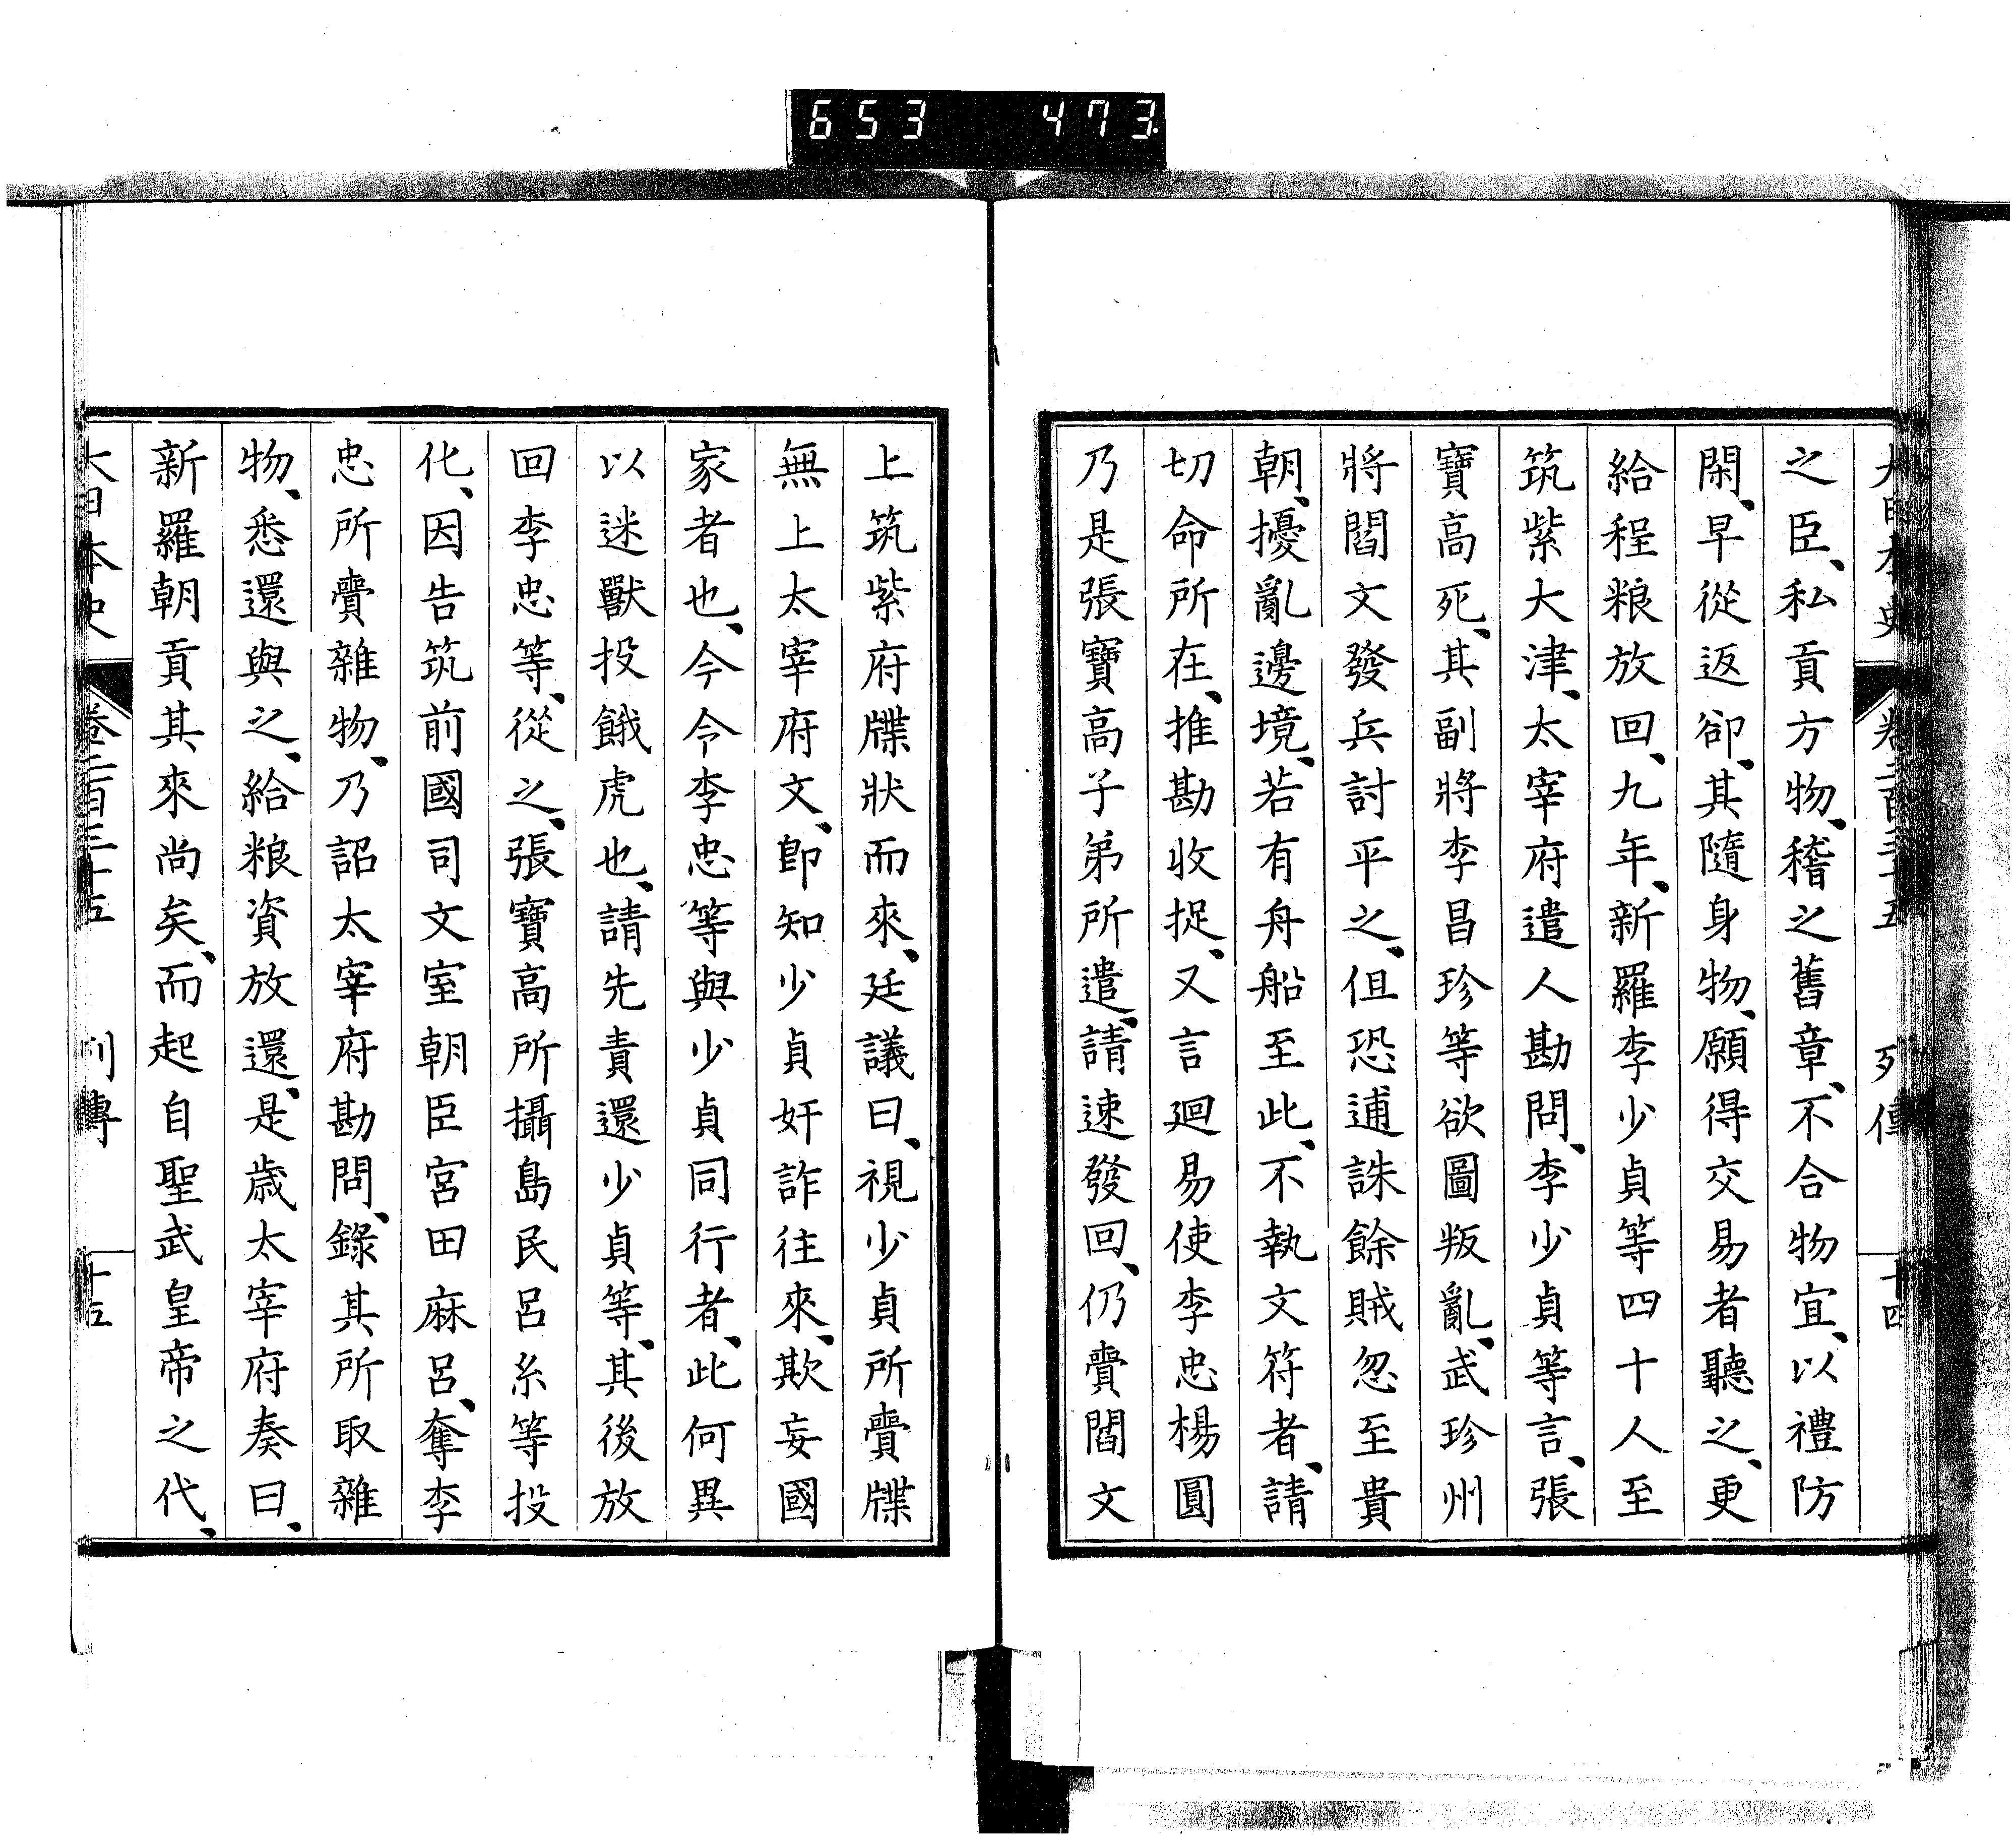 653 473
大日本史 卷二百三十五 列傳 十四
之臣、私貢方物、稽之舊章、不合物宜、以禮防
閑、早從返卻、其隨身物、願得交易者聽之、更
給程粮放回、九年、新羅李少貞等四十人至
筑紫大津、太宰府遣人勘問、李少貞等言、張
寶高死、其副將李昌珍等欲圖叛亂、武珍州
將閻文發兵討平之、但恐逋誅餘賊忽至貴
朝、擾亂邊境、若有舟船至此、不執文符者、請
切命所在、推勘收捉、又言廻易使李忠楊圓
乃是張寶高子弟所遣、請速發回、仍賷閻文
上筑紫府牒狀而來、廷議曰、視少貞所賷牒
無上太宰府文、卽知少貞奸詐往來、欺妄國
家者也、今令李忠等與少貞同行者、此何異
以迷獸投餓虎也、請先責還少貞等、其後放
回李忠等、從之、張寶高所攝島民呂系等投
化、因告筑前國司文室朝臣宮田麻呂、奪李
忠所賷雜物、乃詔太宰府勘問、錄其所取雜
物、悉還與之、給粮資放還、是歲太宰府奏曰、
新羅朝貢其來尚矣、而起自聖武皇帝之代、
大日本史 卷二百三十五 列傳 十五